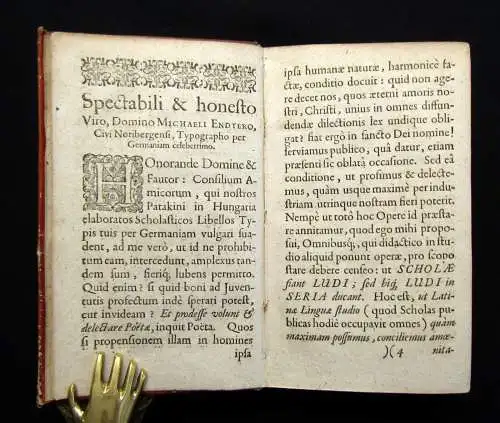 Spectabili & honesto
Viro, Domino MICHAELI ENDTERO,
Civi Noribergensi, Typographo per
Germaniam celeberrimo.
HOnorande Domine &
Fautor: Consilium A-
micorum, qui nostros
Patakini in Hungaria
elaboratos Scholasticos Libellos Ty-
pis tuis per Germaniam vulgari sua-
dent, ad me verò, ut id ne prohibi-
tum eam, intercedunt, amplexus tan-
dem sum, fieriq; lubens permitto.
Quid enim? si quid boni ad Juven-
tutis profectum inde sperari potest,
cur invideam? Et prodesse volunt &
delectare Poëtæ, inquit Poëta. Quos
si propensionem illam in homines
ipsa
ipsa humanæ naturæ, harmonicè fa-
ctæ, conditio docuit: quid non age-
re decet nos, quos æterni amoris no-
stri, Christi, unius in omnes diffun-
dendæ dilectionis lex undique obli-
gat? fiat ergò in sancto Dei nomine!
serviamus publico, quâ datur, etiam
præsenti sic oblatâ occasione. Sed eâ
conditione, ut prosimus & delecte-
mus, quàm usque maximè per indu-
striam utrinque nostram fieri poterit.
Nempè ut totô hoc Opere id præsta-
re annitamur, quod ego mihi propo-
sui, Omnibusq;, qui didactico in stu-
dio aliquid ponunt operæ, pro scopo
stare debere censeo: ut SCHOLÆ
fiant LUDI; sed hiq; LUDI in
SERIA ducant. Hoc est, ut Lati-
næ Linguæ studio (quod Scholas
publicas hodiè occupavit omnes) quàm
maximam possumus, conciliemus amœ-
)( 4 nita-